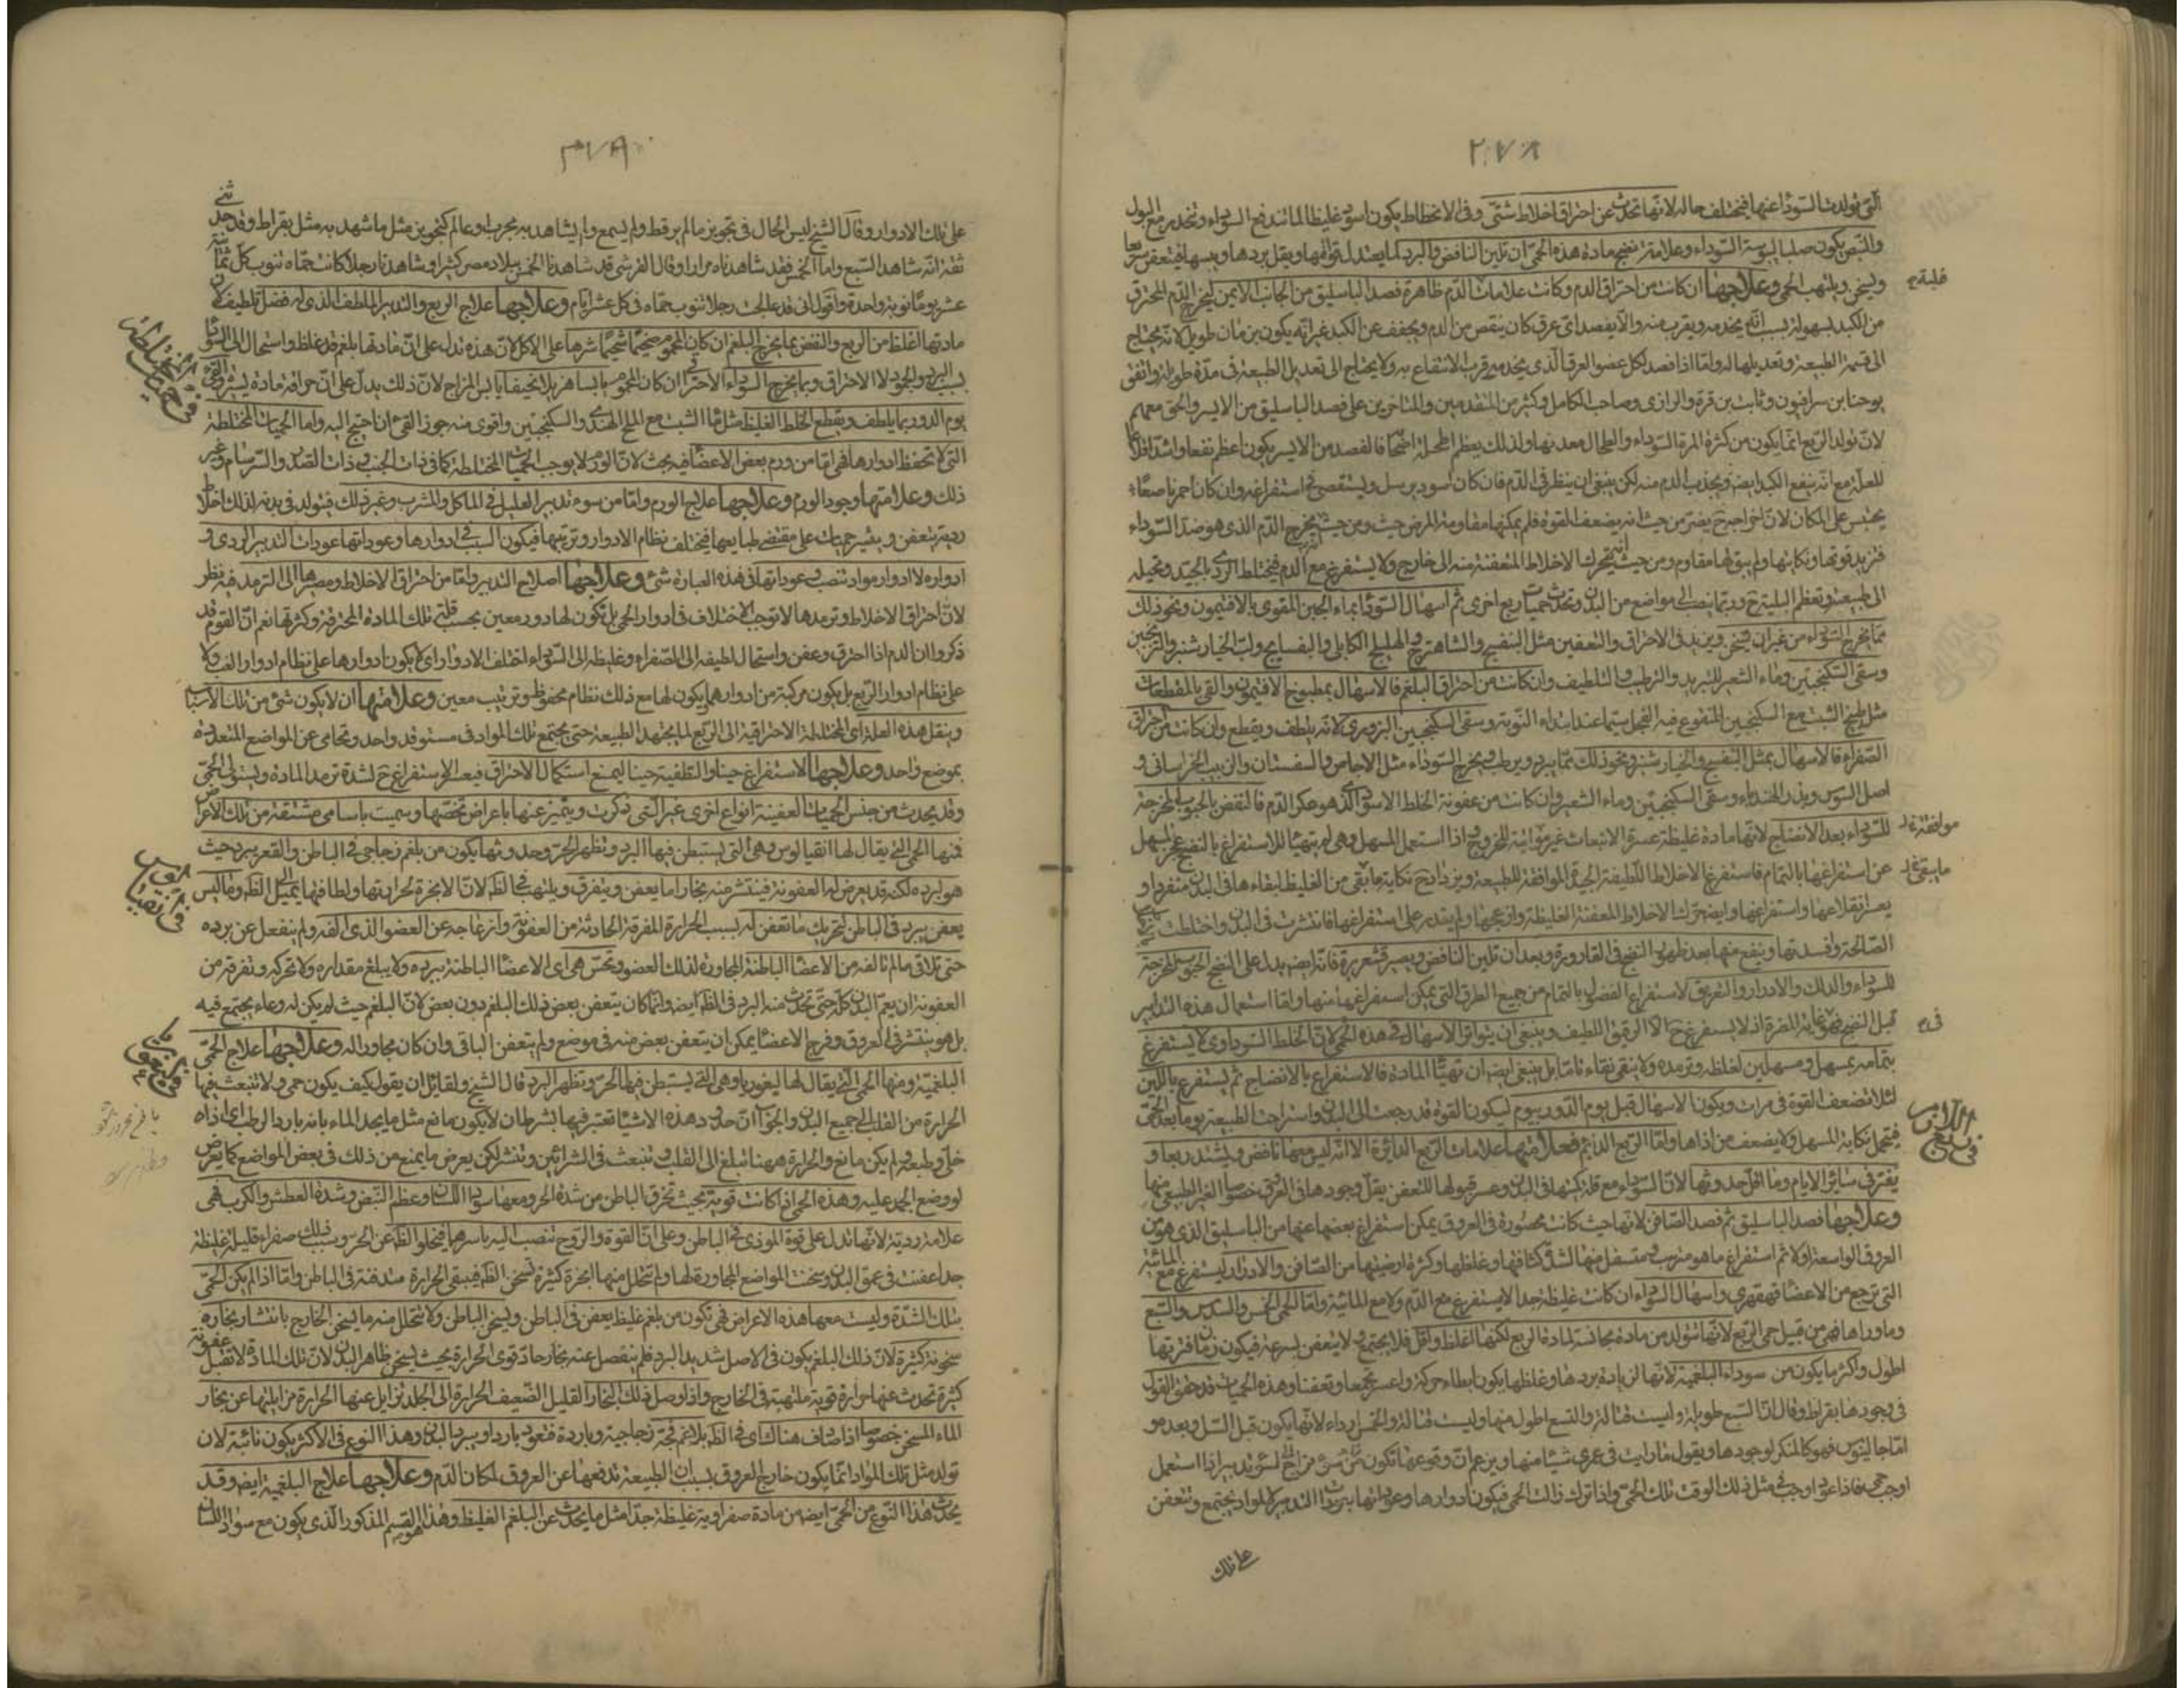 ٢٧٨
التى تولدت السوداء عنها فيختلف حاله لانها تحدث عن احتراق اخلاط شتى وفى الانحطاط يكون اسود غليظا لما تندفع السوداء وتنحدر مع البول
والنبض يكون صلبا ليبوسة السوداء وعلامة نضج مادة هذه الحمى ان تلين النافض والبرد لما يعتدل قوامها ويقل بردها ويبسها فيتعفن سريعا
ويسخن ويلتهب الحمى وعلاجها ان كانت من احتراق الدم وكانت علامات الدم ظاهرة فصد الباسليق من الجانب الايمن ليخرج الدم المحترق
من الكبد بسهولة بسبب انه يخدمه ويقرب منه والا يفصد اى عرق كان ينقص من الدم ويجفف عن الكبد غير انه يكون بزمان طويل لانه يحتاج
الى قسمة الطبيعة وتعديلها له واما اذا فصد لكل عضو العرق الذى يخدمه قرب الانتفاع به ولا يحتاج الى تعديل الطبيعة فى مدة طويلة واتفق
يوحنا بن سرافيون وثابت بن قرة والرازى وصاحب الكامل وكثير من المتقدمين والمتاخرين على فصد الباسليق من الايسر والحق معهم
لان تولد الربع انما يكون من كثرة المرة السوداء والطحال معدنها ولذلك يعظم اطحلة اصحابها فالفصد من الايسر يكون اعظم نفعا واشد اقلاعا
للعلة مع انه ينفع الكبد ايضا ويجذب الدم منه لكن ينبغى ان ينظر فى الدم فان كان اسود يرسل ويستقصى فى استفراغه وان كان احمر ناصعا
يحتبس على المكان لان اخراجه ح يضر من حيث انه يضعف القوة فلم يمكنها مقاومة المرض حيث ومن حيث يخرج الدم الذى هو ضد السوداء
فتزيد قوتها ونكايتها ولم يبق لها مقاوم ومن حيث يتحرك الاخلاط المتعفنة منه الى خارج ولا يستفرغ مع الدم فيختلط الردى بالجيد وتحيله
الى طبيعته وتعظم البلية ح وربما ينصب الى مواضع من البدن وتحدث حميات ربع اخرى ثم اسهال السوداء بماء الجبن المقوى بالافتيمون ونحو ذلك
مما يخرج السوداء من غير ان يسخن ويزيد فى الاحتراق والتعفين مثل البنفسج والشاهترج والهليلج الكابلى والبسفايج ولب الخيار شنبر والترنجبين
وسقى السكنجبين وماء الشعير للتبريد والترطيب والتلطيف وان كانت من احتراق البلغم فالاسهال بمطبوخ الافتيمون والقى بالمقطعات
مثل طبيخ الشبث مع السكنجبين المنقوع فيه الفجل سيما عند ابتداء النوبة وسقى السكنجبين البزورى لانه يلطف ويقطع وان كانت من احتراق
الصفراء فالاسهال بمثل البنفسج والخيار شنبر ونحو ذلك مما يبرد ويرطب ويخرج السوداء مثل الاجاص والسفستان والزبيب الخراسانى و
اصل السوس وبذر الهندباء وسقى السكنجبين وماء الشعير وان كانت من عفونة الخلط الاسود الذى هو عكر الدم فالنفض بالحبوب المخرجة
للسوداء بعد الانضاج لانها مادة غليظة عسرة الانبعاث غير مواتية للخروج اذا استعمل المسهل وهى لم يتهيأ للاستفراغ بالنضج عجز المسهل
عن استفراغها بالتمام فاستفرغ الاخلاط اللطيفة الجيدة الموافقة للطبيعة ويزداد ح نكاية ما بقى من الغليظ لبقاءها فى البدن منفردا و
يعسر انقلاعها واستفراغها وايضا حرك الاخلاط المعفنة الغليظة وازعجها ولم يقدر على استفراغها فانتشرت فى البدن واختلطت
الصالحة وافسدتها وينفع منها بعد ظهور النضج فى القارورة وبعد ان تلين النافض ويصير قشعريرة فانه ايضا يدل على النضج الحبوب المخرجة
للسوداء والدلك والادرار والتعريق لاستفراغ الفضول بالتمام من جميع الطرق التى يمكن استفراغها منها واما استعمال هذه التدابير
قبل النضج فهو غاية المضرة اذ لا يستفرغ ح الا الرقيق اللطيف وينبغى ان يتواتر الاسهال فى هذه الحمى لان الخلط السوداوى لا يستفرغ
بتمامه بمسهل ومسهلين لغلظه وترمده ولا ينقى نقاء تاما بل ينبغى ايضا ان تهيأ المادة فالاستفراغ بالانضاج ثم يستفرغ باللين
لئلا تضعف القوة فى مرات ويكون الاسهال قبل يوم الدور بيوم ليكون القوة قد رجعت الى البدن واستراحت الطبيعة يوما بعد الحمى
فيتحمل نكاية المسهل ولا يضعف من اذاها واما الربع الدائم فعلامتها علامات الربع الدائرة الا انه ليس معها نافض ويشتد ربعا و
يفتر فى سائر الايام وما اقل حدوثها لان السوداء مع قلة كميتها فى البدن وعسر قبولها للتعفن يقل وجودها فى العروق خصوصا الغير الطبيعى منها
وعلاجها فصد الباسليق ثم فصد الصافن لانها حيث كانت محصورة فى العروق يمكن استفراغ بعضها عنها من الباسليق الذى هو من
العروق الواسعة اولا ثم استفراغ ما هو مترسب متسفل منها لشدة كثافتها وغلظها وكثرة ارضيتها من الصافن والادرار ليستفرغ مع المائية
التى ترجع من الاعضاء قهقهرى واسهال السوداء ان كانت غليظة جدا لا يستفرغ مع الدم ولا مع المائية واما الحمى الخمس والسدس والسبع
وما وراها فهى من قبيل حمى الربع لانها تتولد من مادة مجانسة لمادة الربع لكنها اغلظ واقل فلا يجتمع ولا يتعفن بسرعة فيكون زمان فترتها
اطول واكثر ما يكون من سوداء البلغمية لانها لزيادة بردها وغلظها يكون ابطاء حركة واعسر تجمعا وتعفنا وهذه الحميات قد حقق القول
فى وجودها بقراط وقال ان السبع طويلة وليست قتالة والتسع اطول منها وليست قتالة والخمس ارداء لانها يكون قبل السل وبعده و
اما جالينوس فهو كالمنكر لوجودها ويقول ما رايت فى عمرى شيئا منها ويزعم ان وقوعها تكون من سوء تدبير اذا استعمل
اوجب حمى فاذا عود اوجب مثل ذلك الوقت تلك الحمى واذا ترك زالت الحمى فيكون ادوارها وعوداتها بسبب ادوار التدبير لا لمواد تجتمع وتتعفن
على تلك
فلبة م
موافقة خل
ما يبقى خل
فى م
فى الربع اللازمة
٢٧٩
على تلك الادوار وقال الشيخ ليس الحال فى تجويز ما لم ير قط ولم يسمع ولم يشاهد به مجرب او عالم كتجويز مثل ما شهد به مثل بقراط وقد حدثنى
ثقة انه شاهد السبع واما الخمس فقد شاهدناه مرارا وقال القرشى قد شاهدنا الخمس ببلاد مصر كثيرا وشاهدنا رجلا كانت حماه تنوب كل ثمانية
عشر يوما نوبة واحدة واقول انى قد عالجت رجلا تنوب حماه فى كل عشر ايام وعلاجها علاج الربع والتدبير الملطف الذى له فضل تلطيف لان
مادتها اغلظ من الربع والنفض بما يخرج البلغم ان كان المحموم ضخما شحيما شرها على الاكل لان هذه تدل على ان مادتها بلغم قد غلظ واستحال الى السوداء
بسبب البرد والجمود لا الاحتراق وبما يخرج السوداء الاحتراقى ان كان المحموم يابسا هزيلا نحيفا يابس المزاج لان ذلك يدل على ان حرافة مادة بسبب والقى
يوم الدور بما يلطف ويقطع الخلط الغليظ مثل ماء الشبث مع الملح الهندى والسكنجبين واقوى منه جوز القى ان احتيج اليه واما الحميات المختلطة
التى لا تحفظ ادوارها فهى اما من ورم بعض الاعضاء فيه بحث لان الورم لا يوجب الحميات المختلطة كما فى ذات الجنب وذات الصدر والسرسام وغير
ذلك وعلامتها وجود الورم وعلاجها علاج الورم واما من سوء تدبير العليل فى الماكل والمشرب وغير ذلك فيتولد فى بدنه لذلك اخلاط
ردية يتعفن ويثير حميات على مقتضى طبايعها فيختلف نظام الادوار وترتيبها فيكون السبب فى ادوارها وعوداتها عودات التدبير الردى و
ادواره لا ادوار مواد تنصب وعوداتها فى هذه العبارة شئ وعلاجها اصلاح التدبير واما من احتراق الاخلاط ومصيرها الى الترمد فيه نظر
لان احتراق الاخلاط وترمدها لا توجب الاختلاف فى ادوار الحمى بل تكون لها دور معين بحسب قلة تلك المادة المحترقة وكثرتها نعم ان القوم قد
ذكروا ان الدم اذا احترق وعفن واستحال لطيفه الى الصفراء وغليظه الى السوداء اختلف الادوار اى لا يكون ادوارها على نظام ادوار الغب ولا
على نظام ادوار الربع بل يكون مركبة من ادوارهما يكون لها مع ذلك نظام محفوظ وترتيب معين وعلامتها ان لا يكون شئ من تلك الاسباب
وينقل هذه العلة اى المختلطة الاحتراقية الى الربع لما يجتهد الطبيعة حتى يجتمع تلك المواد فى مستوقد واحد وتحامى عن المواضع المتعددة
بموضع واحد وعلاجها الاستفراغ حينا والتطفية حينا ليمنع استكمال الاحتراق فيعسر الاستفراغ ح لشدة ترمد المادة ويستولى الحمى
وقد يحدث من جنس الحميات العفنية انواع اخرى غير التى ذكرت ويتميز عنها باعراض تخصها وسميت باسامى مشتقة من تلك الاعراض
فمنها الحمى التى يقال لها انفيالوس وهى التى يستبطن فيها البرد ويظهر الحر وحدوثها يكون من بلغم زجاجى فى الباطن والقعر يبرد حيث
هو لبرده لكنه قد يعرض له العفونة فينتشر منه بخار ما يعفن ويتفرق ويلتهب فى الظاهر لان الابخرة لحرارتها ولطافتها يميل الى الظاهر وما ليس
يعفن يبرد فى الباطن لتحريك ما تعفن له بسبب الحرارة المفرقة الحادثة من العفونة وازعاجه عن العضو الذى الفه ولم ينفعل عن برده
حتى تلاقى ما لم تالفه من الاعضاء الباطنة المجاورة لذلك العضو وتحس هى اى الاعضاء الباطنة ببرده ولا يبلغ مقداره ولا تحركه وتفرقه من
العفونة ان يعم البدن كله حتى تحدث منه البرد فى الظاهر ايضا وانما كان يتعفن بعض ذلك البلغم دون بعض لان البلغم حيث لم يكن له وعاء يجتمع فيه
بل هو منتشر فى العروق وفرج الاعضاء يمكن ان يتعفن بعض منه فى موضع ولم يتعفن الباقى وان كان مجاورا له وعلاجها علاج الحمى
البلغمية ومنها الحمى التى يقال لها ليفوريا وهى التى يستبطن فيها الحر وتظهر البرد قال الشيخ ولقائل ان يقول كيف يكون حمى ولا تنبعث فيها
الحرارة من القلب الى جميع البدن والجواب ان حدود هذه الاشياء تعتبر فيها بشرط ان لا يكون مانع مثل ما يحد الماء بانه بارد الرطب اى اذا
خلى وطبعه ولم يكن مانع والحرارة ههنا تبلغ الى القلب وتنبعث فى الشرائين وتنشر لكن يعرض ما يمنع من ذلك فى بعض المواضع كما يعرض
لو وضع الجمد عليه وهذه الحمى اذا كانت قوية بحيث تحرق الباطن من شدة الحر ومعها سواد اللسان وعظم النبض وشدة العطش والكرب فهى
علامة ردية لانها تدل على قوة الموذى فى الباطن وعلى ان القوة والروح تنصب اليه باسرهما فيخلو الظاهر عن الحر وسبب ذلك صفراء قليلة غليظة
جدا عفنت فى عمق البدن وسخنت المواضع المجاورة لها ولم تتحلل منها ابخرة كثيرة تسخن الظاهر فيبقى الحرارة مندفنة فى الباطن واما اذا لم يكن الحمى
بتلك الشدة وليست معها هذه الاعراض فهى تكون من بلغم غليظ يعفن فى الباطن ويسخن الباطن ولا يتحلل منه ما يسخن الخارج بانتشار بخاره
سخونة كثيرة لان ذلك البلغم يكون فى الاصل شديد البرد فلم ينفصل عنه بخار حاد قوى الحرارة بحيث يسخن ظاهر البدن لان تلك المادة لا تقبل عفونة
كثيرة تحدث عنها حرارة قوية ملتهبة فى الخارج واذا وصل ذلك البخار القليل الضعيف الحرارة الى الجلد تزايل عنها الحرارة مزايلتها عن بخار
الماء المسخن خصوصا اذا صادف هناك اى فى الظاهر بلاغم فجة زجاجية وباردة فتعود باردا ويبرد البدن وهذا النوع فى الاكثر يكون نائبة لان
تولد مثل تلك المواد انما يكون خارج العروق بسبب ان الطبيعة تدفعها عن العروق لمكان الدم وعلاجها علاج البلغمية ايضا وقد
يحدث هذا النوع من الحمى ايضا من مادة صفراوية غليظة جدا مثل ما يحدث عن البلغم الغليظ وهذا هو القسم المذكور الذى يكون مع سواد اللسان
فى الحميات المختلطة
فى انفيالوس
فى ليفوريا